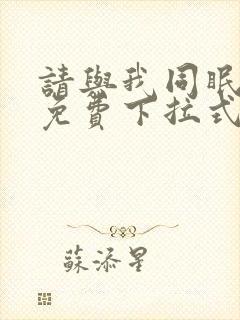 請與我同眠
免費下拉式
蘇添星